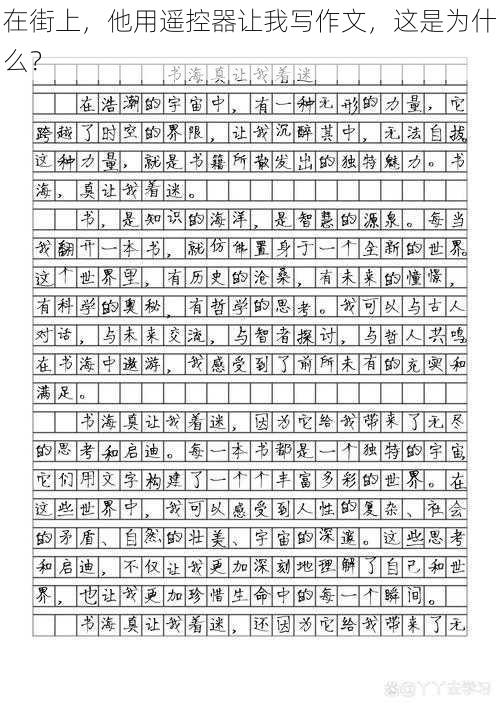 在街上，他用遥控器让我写作文，这是为什
么？
书海真让我着迷
在浩瀚的宇宙中，有一种无形的力量，它
跨越了时空的界限，让我沉醉其中，无法自拔
这种力量，就是书籍所散发出的独特魅力。书
海，真让我着迷。
书，是知识的海洋，是智慧的源泉。每当
我翻开一本书，就仿佛置身于一个全新的世界。
这个世界里，有历史的沧桑，有未来的憧憬，
有科学的奥秘，有哲学的思考。我可以与古人
对话，与未来交流，与智者探讨，与哲人共鸣
在书海中遨游，我感受到了前所未有的充实和
满足。
书海真让我着迷，因为它给我带来了无尽
的思考和启迪。每一本书都是一个独特的宇宙
它们用文字构建了一个个丰富多彩的世界。在
这些世界中，我可以感受到人性的复杂、社会
的矛盾、自然的壮美、宇宙的深邃。这些思考
和启迪，不仅让我更加深刻地理解了自己和世
界，也让我更加珍惜生命中的每一个瞬间。
书海真让我着迷，还因为它给我带来了无
@丫丫去学习